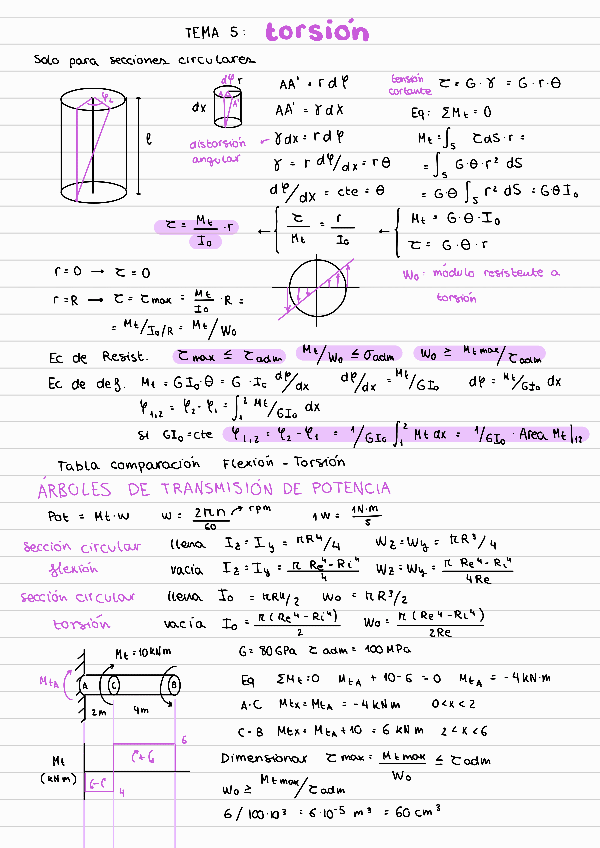 TEMA 5: torsión
Solo para secciones circulares
φ₂
ℓ
dφ r
dx
A'
distorsión
angular
AA' = r dφ
AA' = γ dx
γdx = r dφ
γ = r dφ/dx = rθ
dφ/dx = cte = θ
tensión
cortante
τ = G · γ = G · r · θ
Eq: ΣMt = 0
Mt = ∫s τ dS · r =
= ∫s G · θ · r² dS
= Gθ ∫s r² dS = GθI₀
τ = Mt/I₀ · r ← { τ/Mt = r/I₀ ← { Mt = G · θ · I₀
τ = G · θ · r
r = 0 → τ = 0
r = R → τ = τmax = Mt/I₀ · R =
= Mt/I₀/R = Mt/W₀
W₀: módulo resistente a
torsión
Ec de Resist. τmax ≤ τadm Mt/W₀ ≤ σadm W₀ ≥ Mtmax/τadm
Ec de def. Mt = GI₀·θ = G · I₀ dφ/dx dφ/dx = Mt/GI₀ dφ = Mt/GI₀ dx
φ₁,₂ = φ₂ - φ₁ = ∫₁² Mt/GI₀ dx
si GI₀ = cte φ₁,₂ = φ₂ - φ₁ = 1/GI₀ ∫₁² Mt dx = 1/GI₀ · Area Mt|₁₂
Tabla comparación Flexión - Torsión
ÁRBOLES DE TRANSMISIÓN DE POTENCIA
Pot = Mt·w w = 2πn/60 → rpm 1W = 1N·m/s
sección circular llena Iz = Iy = πR⁴/4 Wz = Wy = πR³/4
flexión vacía Iz = Iy = π Re⁴-Ri⁴/4 Wz = Wy = π Re⁴-Ri⁴/4Re
sección circular llena I₀ = πR⁴/2 W₀ = πR³/2
torsión vacía I₀ = π(Re⁴-Ri⁴)/2 W₀ = π(Re⁴-Ri⁴)/2Re
Mt = 10kNm
MtA
A C B
2m 4m
G = 80GPa τ adm = 100MPa
Eq ΣMt = 0 MtA + 10 - 6 = 0 MtA = -4 kN·m
A-C Mtx = MtA = -4 kNm 0<x<2
C-B Mtx = MtA + 10 = 6 kNm 2<x<6
6
Mt
(kNm)
4
Dimensionar τmax = Mtmax/W₀ ≤ τadm
W₀ ≥ Mtmax/τadm
6/100·10³ = 6·10⁻⁵ m³ = 60 cm³